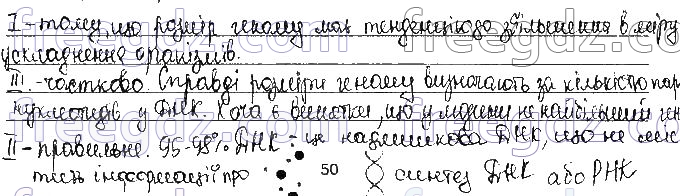 I - тому, що розмір геному має тенденцію до збільшення в міру
ускладнення організмів.
III. - частково. Справді розміри геному визначають за кількістю пар
нуклеотидів у ДНК. Хоча є винятки, що у людини не найбільший ген
II - правильне. 95-98% ДНК - це надлишкова ДНК, що не міс
тить інформації про 50 синтез ДНК або РНК
freegdz.com